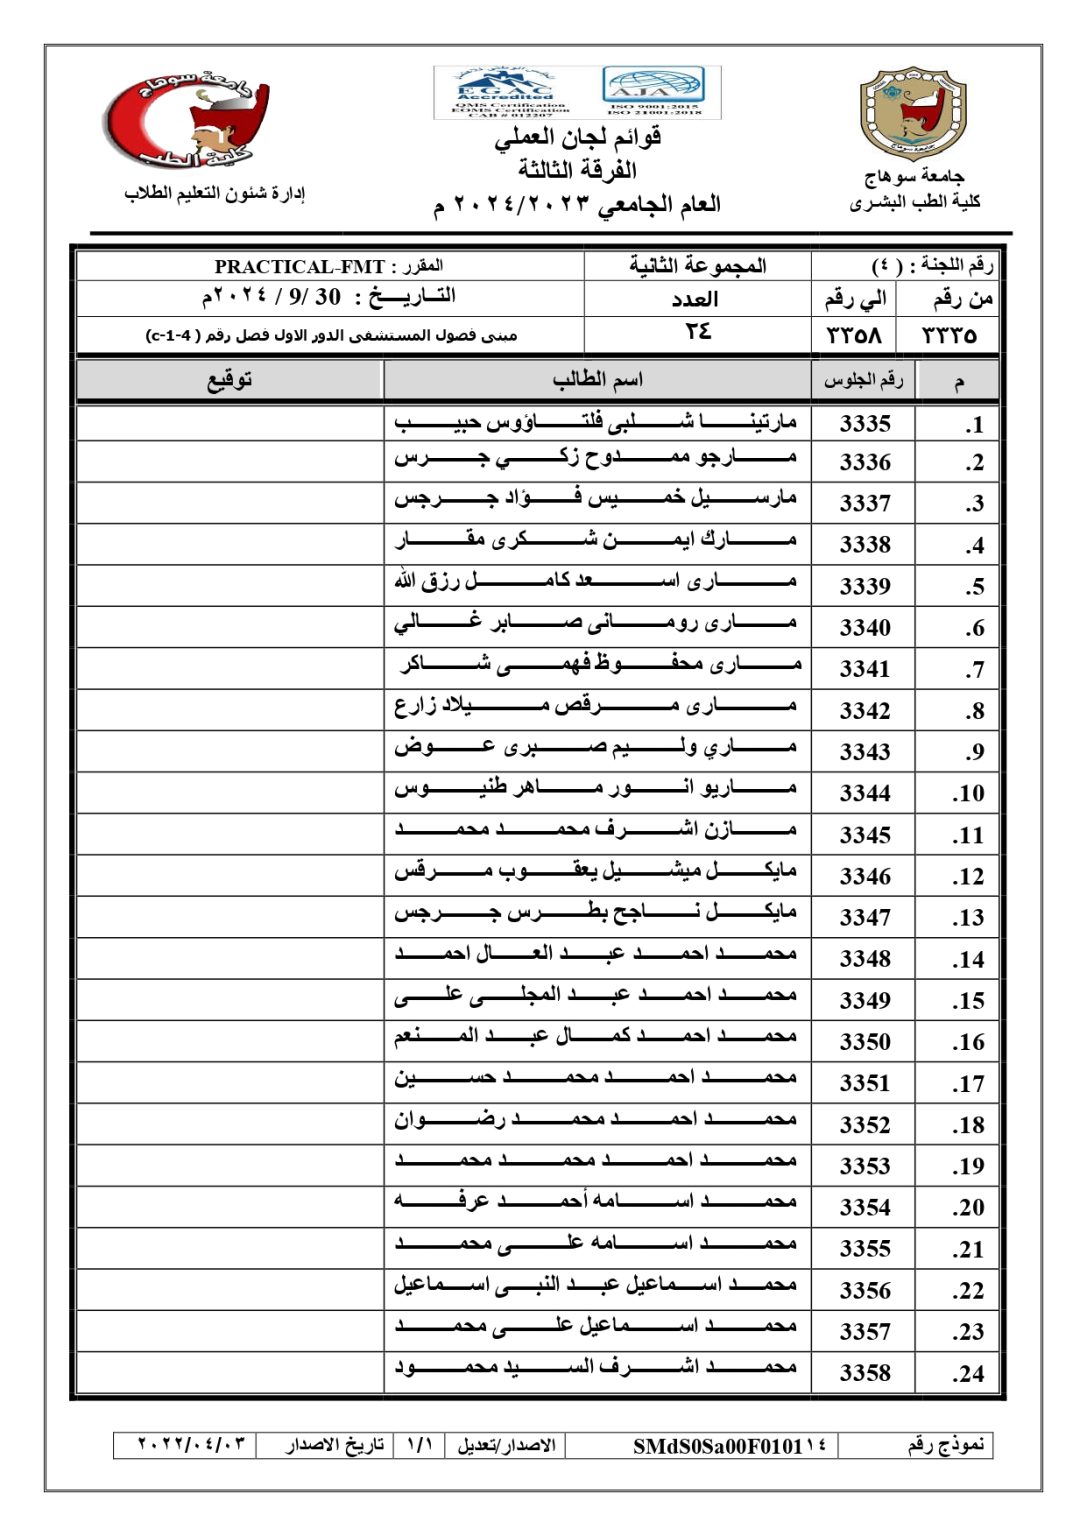 جامعة سوهاج
كلية الطب
إدارة شئون التعليم الطلاب
EGAC
Accredited
QMS Certification
EOMS Certification
CAB # 012207
AJA
ISO 9001:2015
ISO 21001:2018
قوائم لجان العملي
الفرقة الثالثة
العام الجامعي ٢٠٢٤/٢٠٢٣ م
جامعة سوهاج
كلية الطب البشرى
رقم اللجنة : ( ٤ ) المجموعة الثانية المقرر : PRACTICAL-FMT
من رقم الي رقم العدد التاريخ : 30 /9 / ٢٠٢٤م
٣٣٣٥ ٣٣٥٨ ٢٤ مبنى فصول المستشفى الدور الاول فصل رقم ( c-1-4)
م رقم الجلوس اسم الطالب توقيع
1. 3335 مارتينا شلبى فلتاؤوس حبيب
2. 3336 مارجو ممدوح زكي جرس
3. 3337 مارسيل خميس فؤاد جرجس
4. 3338 مارك ايمن شكرى مقار
5. 3339 مارى اسعد كامل رزق الله
6. 3340 مارى رومانى صابر غالي
7. 3341 مارى محفوظ فهمى شاكر
8. 3342 مارى مرقص ميلاد زارع
9. 3343 ماري وليم صبرى عوض
10. 3344 ماريو انور ماهر طنيوس
11. 3345 مازن اشرف محمد محمد
12. 3346 مايكل ميشيل يعقوب مرقس
13. 3347 مايكل ناجح بطرس جرجس
14. 3348 محمد احمد عبد العال احمد
15. 3349 محمد احمد عبد المجلى على
16. 3350 محمد احمد كمال عبد المنعم
17. 3351 محمد احمد محمد حسين
18. 3352 محمد احمد محمد رضوان
19. 3353 محمد احمد محمد محمد
20. 3354 محمد اسامه أحمد عرفه
21. 3355 محمد اسامه على محمد
22. 3356 محمد اسماعيل عبد النبى اسماعيل
23. 3357 محمد اسماعيل على محمد
24. 3358 محمد اشرف السيد محمود
نموذج رقم SMdS0Sa00F0101١٤ الاصدار/تعديل ١/١ تاريخ الاصدار ٢٠٢٢/٠٤/٠٣